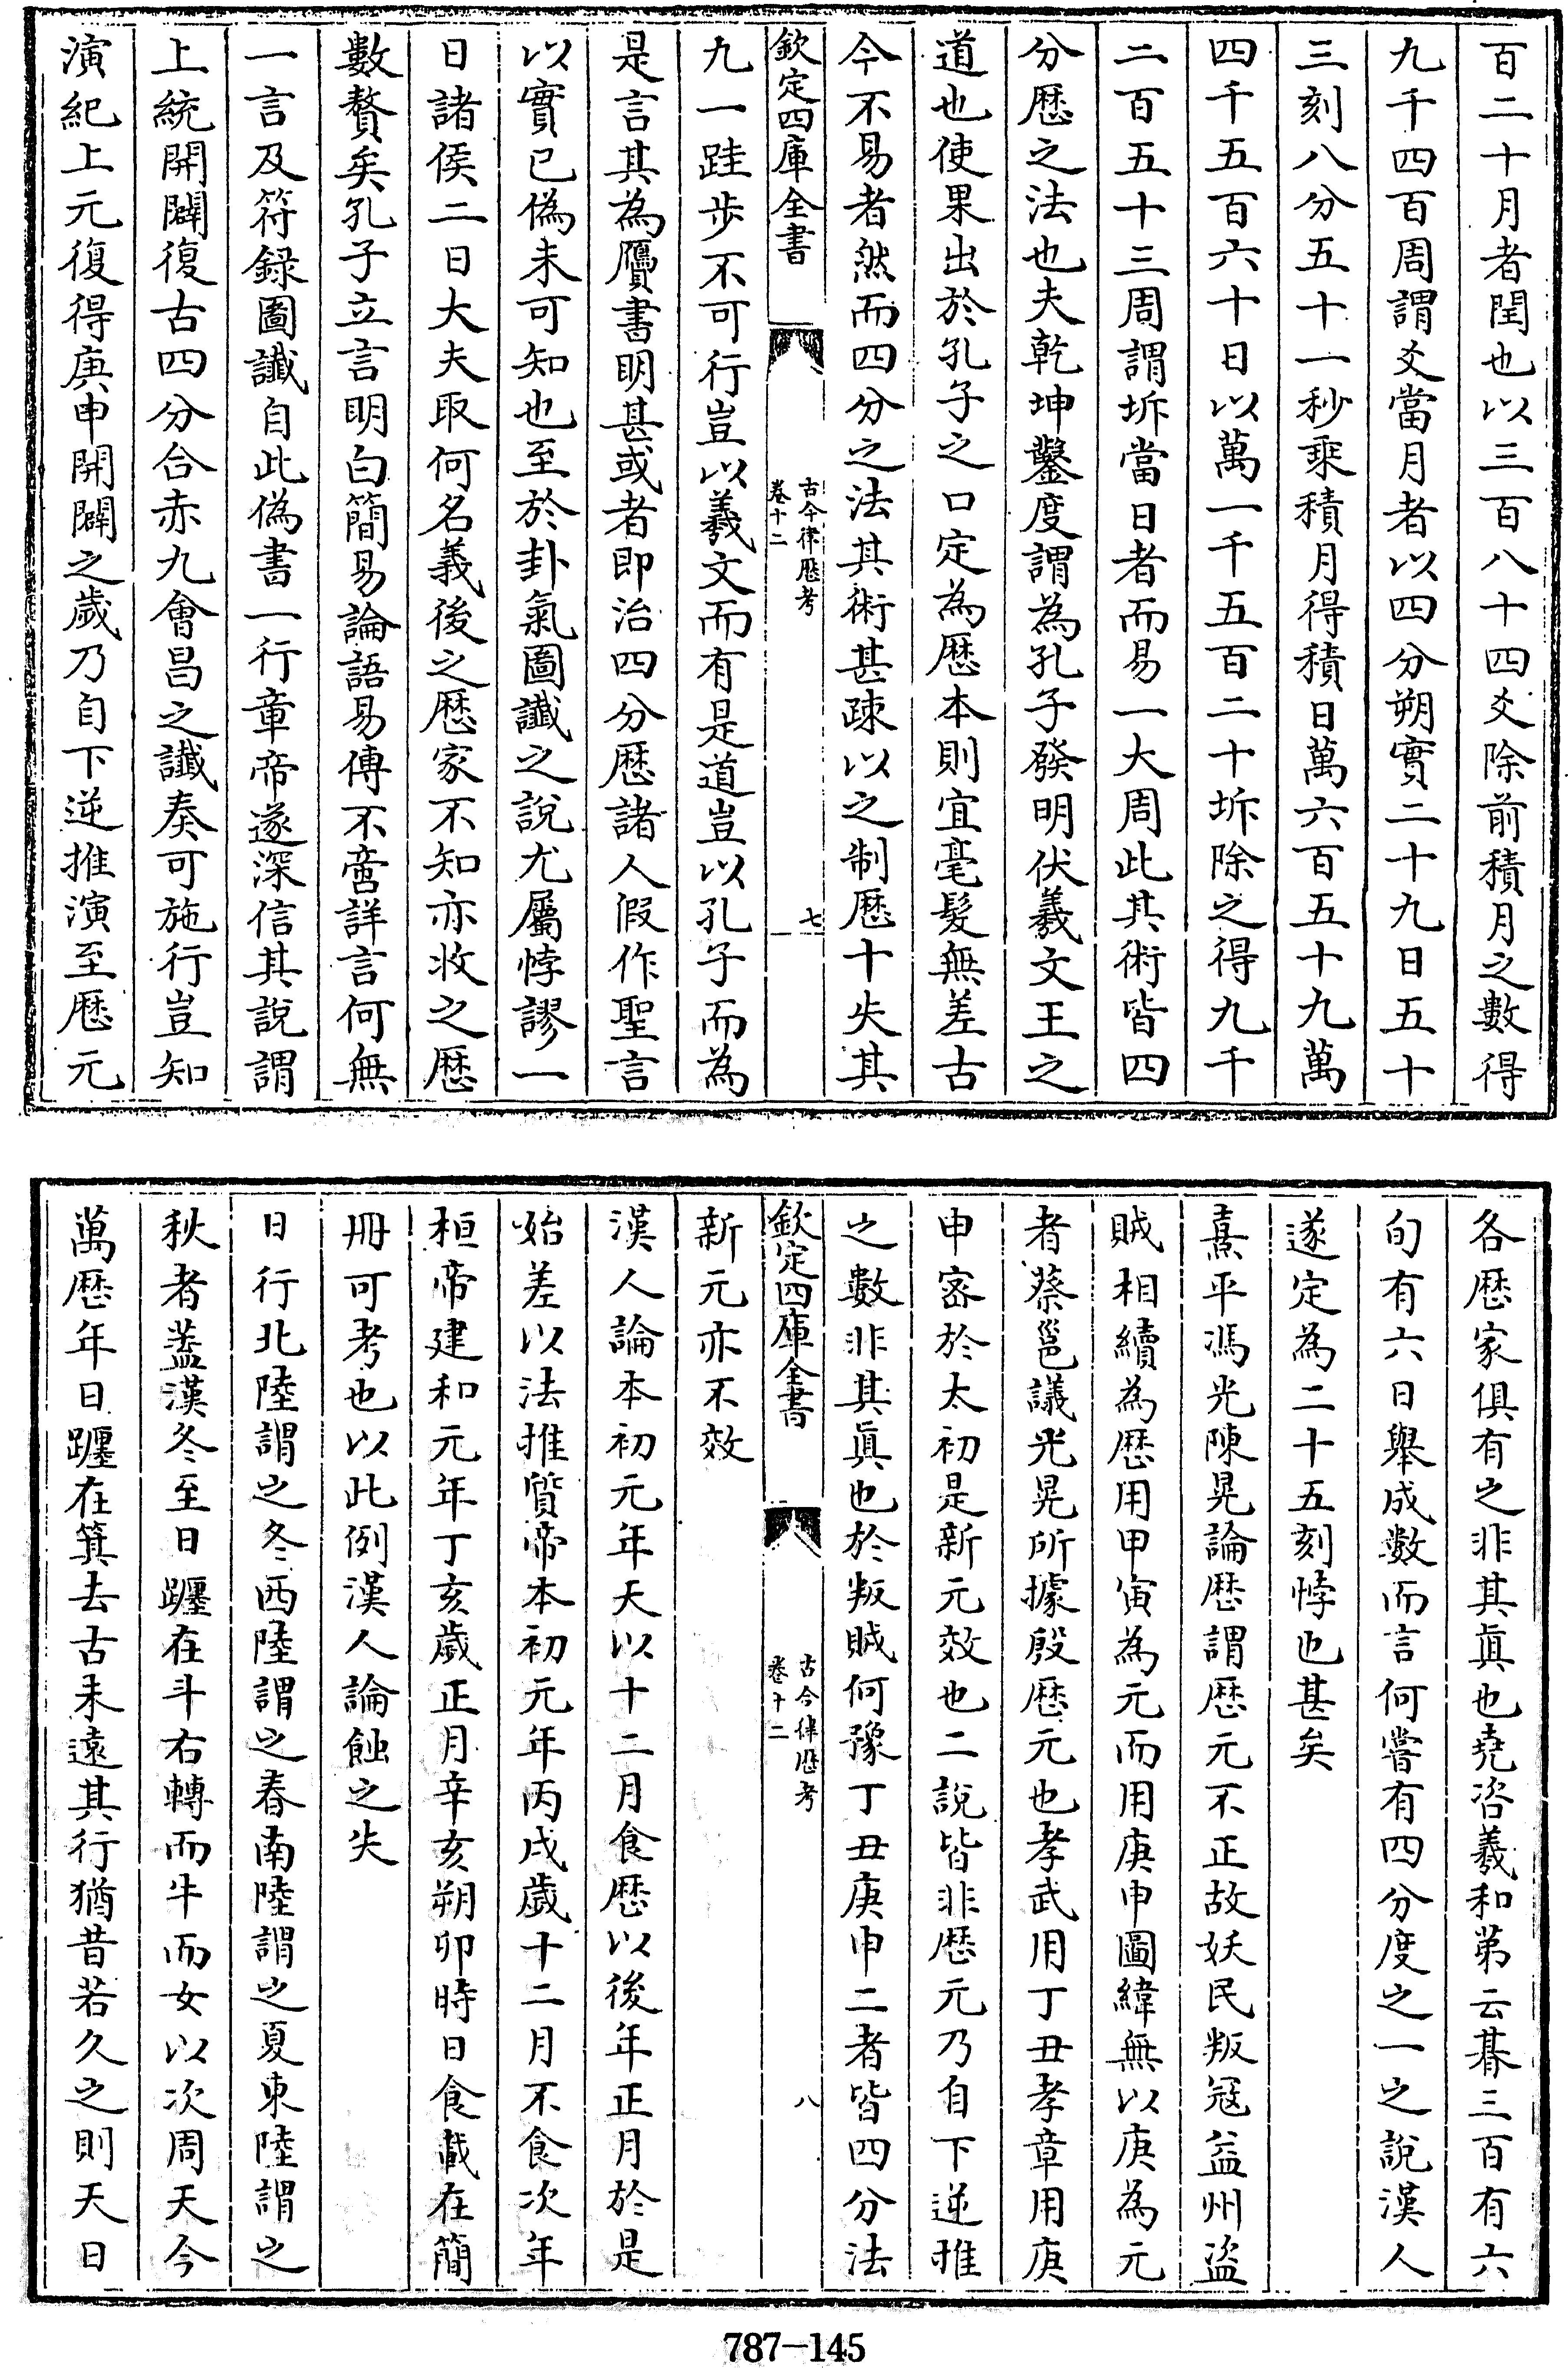 百二十月者閏也以三百八十四爻除前積月之數得
九千四百周謂爻當月者以四分朔實二十九日五十
三刻八分五十一秒乘積月得積日萬六百五十九萬
四千五百六十日以萬一千五百二十坼除之得九千
二百五十三周謂坼當日者而易一大周此其術皆四
分歴之法也夫乾坤鑿度謂為孔子發明伏羲文王之
道也使果出於孔子之口定為歴本則宜毫髮無差古
今不易者然而四分之法其術甚疎以之制歴十失其
欽定四庫全書
古今律歴考
卷十二
七
九一跬步不可行豈以羲文而有是道豈以孔子而為
是言其為贗書明甚或者即治四分歴諸人假作聖言
以實已偽未可知也至於卦氣圖讖之說尤屬悖謬一
日諸侯二日大夫取何名義後之歴家不知亦收之歴
數贅矣孔子立言明白簡易論語易傳不啻詳言何無
一言及符録圖讖自此偽書一行章帝遂深信其說謂
上統開闢復古四分合赤九會昌之讖奏可施行豈知
演紀上元復得庚申開闢之歲乃自下逆推演至歴元
各歴家俱有之非其眞也堯咨羲和第云朞三百有六
旬有六日舉成數而言何嘗有四分度之一之說漢人
遂定為二十五刻悖也甚矣
熹平馮光陳晃論歴謂歴元不正故妖民叛冦益州盗
賊相續為歴用甲寅為元而用庚申圖緯無以庚為元
者蔡邕議光晃所據殷歴元也孝武用丁丑孝章用庚
申宻於太初是新元效也二說皆非歴元乃自下逆推
之數非其眞也於叛賊何豫丁丑庚申二者皆四分法
欽定四庫全書
古今律歴考
卷十二
八
新元亦不效
漢人論本初元年天以十二月食歴以後年正月於是
始差以法推質帝本初元年丙戌歲十二月不食次年
桓帝建和元年丁亥歲正月辛亥朔卯時日食載在簡
冊可考也以此例漢人論蝕之失
日行北陸謂之冬西陸謂之春南陸謂之夏東陸謂之
秋者葢漢冬至日躔在斗右轉而牛而女以次周天今
萬歴年日躔在箕去古未遠其行猶昔若久之則天日
787-145